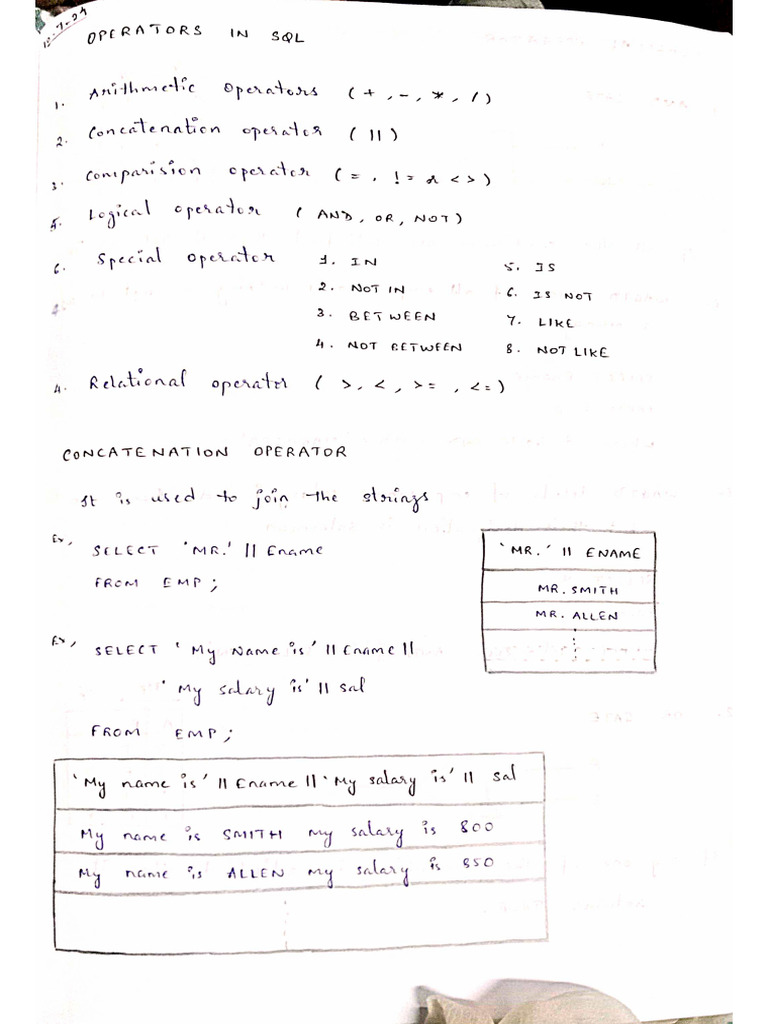 OPERATORS IN SQL
1. Arithmetic operators (+, -, *, /)
2. Concatenation operator (||)
3. Comparision operator (=, != & <>)
5. Logical operator (AND, OR, NOT)
6. Special operator 1. IN 5. IS
2. NOT IN 6. IS NOT
3. BETWEEN 7. LIKE
4. NOT BETWEEN 8. NOT LIKE
4. Relational operator (>, <, >=, <=)
CONCATENATION OPERATOR
It is used to join the strings
Ex, SELECT 'MR.' || Ename
FROM EMP;
'MR.' || ENAME
MR. SMITH
MR. ALLEN
Ex, SELECT ' My Name is' || Ename ||
' My salary is' || sal
FROM EMP;
'My name is' || Ename || 'My salary is' || sal
My name is SMITH my salary is 800
My name is ALLEN my salary is 850